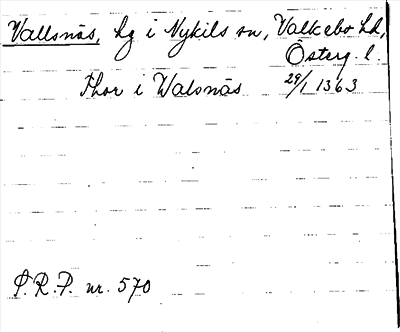 Vallsnäs, hg i Nykils sn, Valkebo hd,
Österg. l.
Thor i Walsnäs 29/1 1363
S.R.P. nr. 570